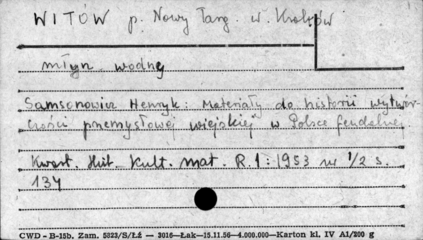 WITÓW p. Nowy Targ. w Kraków
młyn wodny
Samsonowicz Henryk: Materiały do historii wytwór-
czości przemysłowej wiejskiej w Polsce feudalnej
Kwart. Hist. Kult. mat. R.1: 1953 nr 1/2 s.
134
CWD - B-15b. Zam. 5823/S/Łź — 3016—Łak—15.11.56—4.000.000—Karton kl. IV A1/200 g